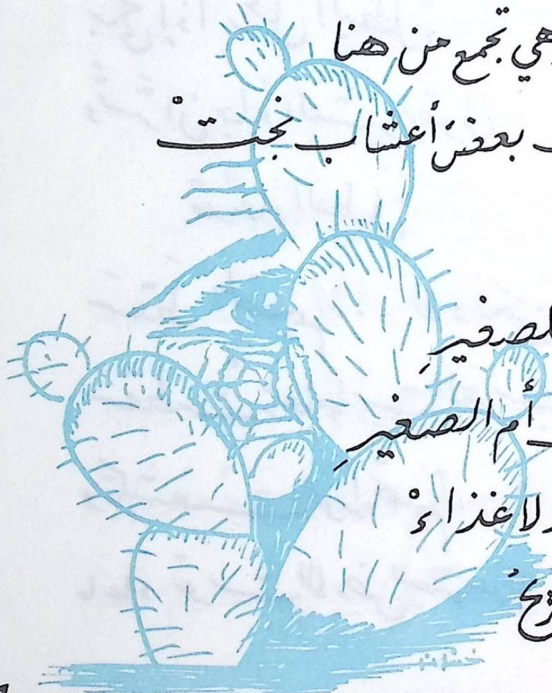 هي تجمع من هنا
بعضَ أعشاب نجتْ
للصغيرِ
أم الصغيرِ
ولا غذاءْ